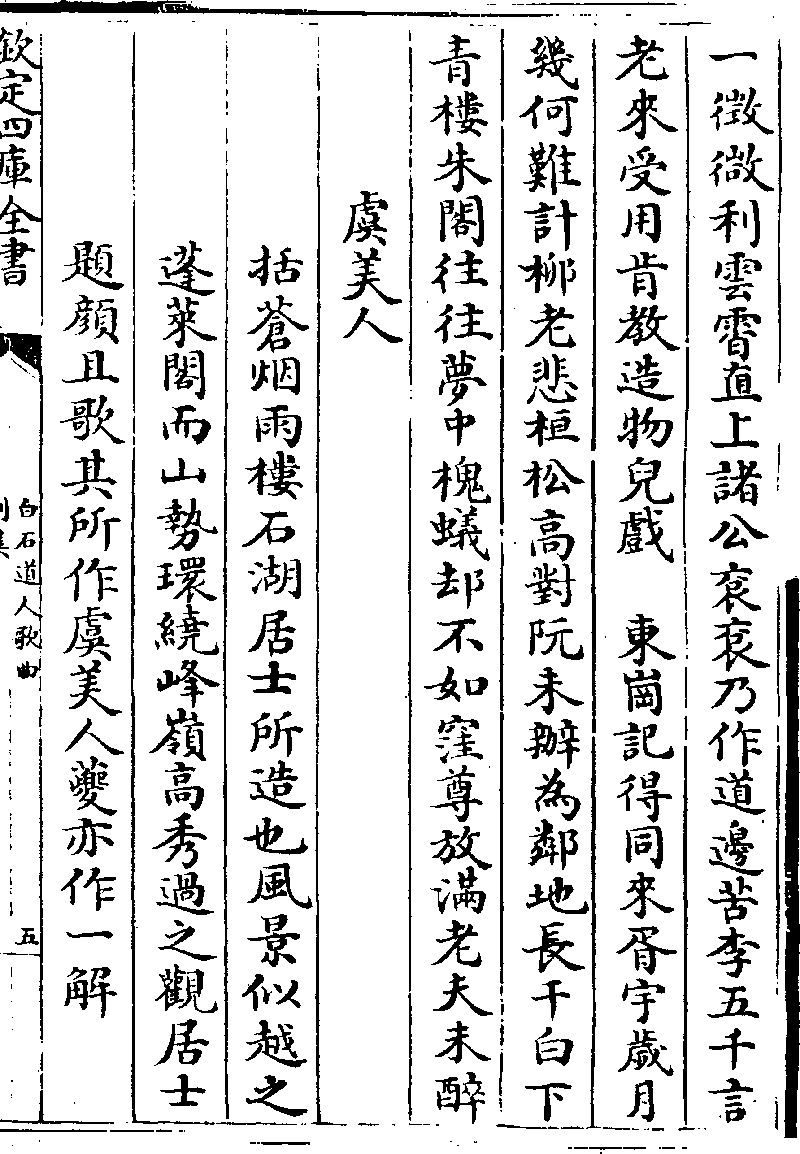 一徴微利雲霄直上諸公衮衮乃作道邊苦李五千言
老來受用肯教造物兒戲　東崗記得同來胥宇歲月
幾何難計柳老悲桓松高對阮未辦為鄰地長干白下
青樓朱閣往往夢中槐蟻却不如窪尊放滿老夫未醉
虞美人
括蒼烟雨樓石湖居士所造也風景似越之
蓬萊閣而山勢環繞峰嶺高秀過之觀居士
題顔且歌其所作虞美人夔亦作一解
欽定四庫全書
白石道人歌曲
五